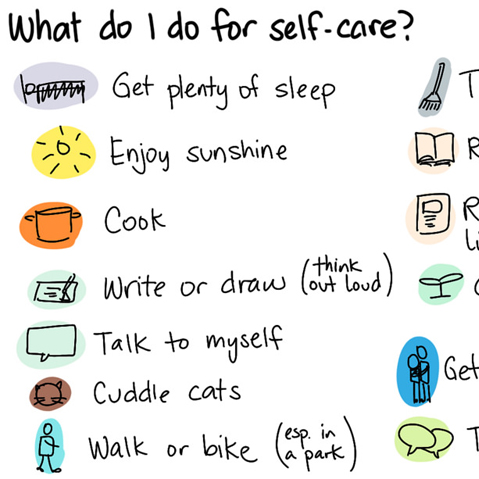 What do I do for self-care?
Get plenty of sleep
Enjoy sunshine
Cook
Write or draw (think out loud)
Talk to myself
Cuddle cats
Walk or bike (esp. in a park)
T
R
R
Li
Get
T